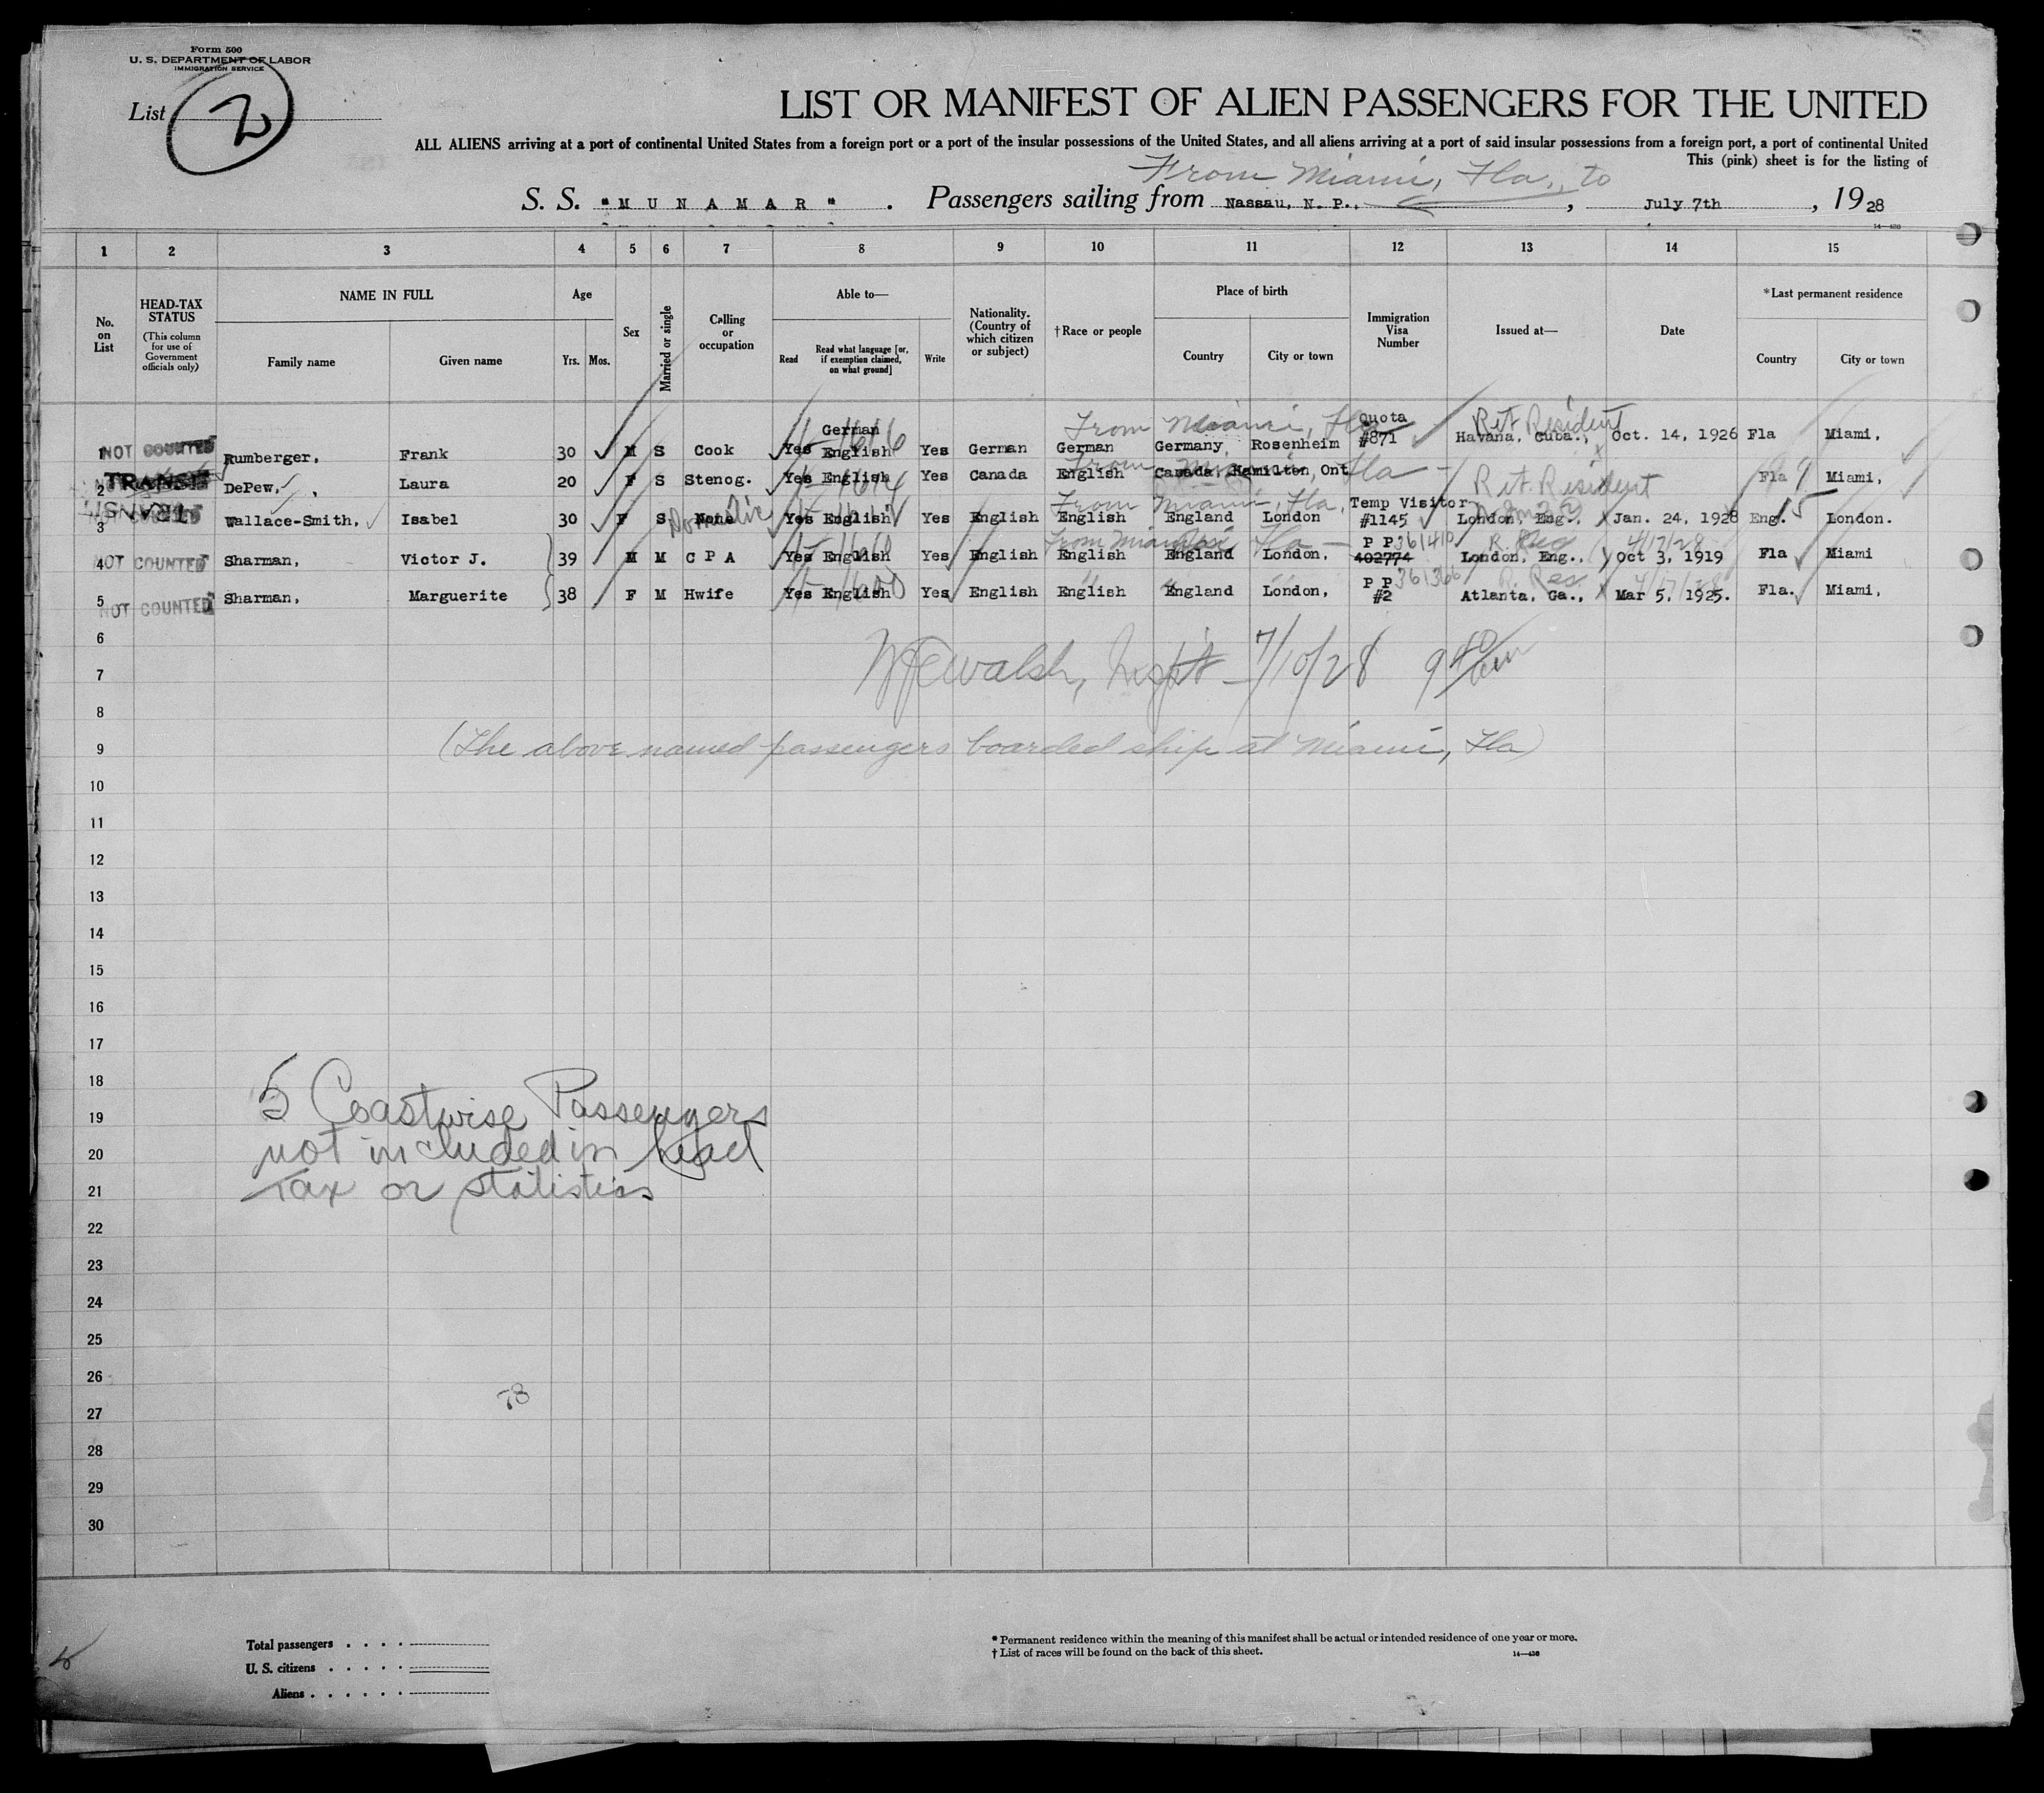 Form 500
U. S. DEPARTMENT OF LABOR
IMMIGRATION SERVICE
List 2
LIST OR MANIFEST OF ALIEN PASSENGERS FOR THE UNITED
ALL ALIENS arriving at a port of continental United States from a foreign port or a port of the insular possessions of the United States, and all aliens arriving at a port of said insular possessions from a foreign port, a port of continental United
This (pink) sheet is for the listing of
From Miami, Fla., to
S. S. "MUNAMAR". Passengers sailing from Nassau, N. P., , July 7th , 1928
14—430
1 2 3 4 5 6 7 8 9 10 11 12 13 14 15
No. on List
HEAD-TAX STATUS
(This column for use of Government officials only)
NAME IN FULL
Family name
Given name
Age
Yrs.
Mos.
Sex
Married or single
Calling or occupation
Able to—
Read
Read what language [or, if exemption claimed, on what ground]
Write
Nationality. (Country of which citizen or subject)
†Race or people
Place of birth
Country
City or town
Immigration Visa Number
Issued at—
Date
*Last permanent residence
Country
City or town
From Miami, Fla Quota Ret Resident
1 NOT COUNTED Rumberger, Frank 30 M S Cook Yes German English Yes German German Germany, Rosenheim #871 Havana, Cuba., Oct. 14, 1926 Fla Miami,
From Miami, Fla Ret. Resident
2 TRANSIT DePew, Laura 20 F S Stenog. Yes English Yes Canada English Canada Hamilton, Ont. Fla Miami,
From Miami, Fla, Temp Visitor
3 TRANSIT Wallace-Smith, Isabel 30 F S None Domestic Yes English Yes English English England London #1145 London, Eng., Jan. 24, 1928 Eng. 15 London.
From Miami Fla P P 361410 4/17/28
4 NOT COUNTED Sharman, Victor J. 39 M M C P A Yes English Yes English English England London, 402774 London, Eng., Oct 3, 1919 Fla Miami
P P 361366 R. Res. 4/17/28
5 NOT COUNTED Sharman, Marguerite 38 F M Hwife Yes English Yes English English England London, #2 Atlanta, Ga., Mar 5, 1925. Fla. Miami,
6
Walsh, Inspt — 7/10/28 9 40/am
7
8
9 (The above named passengers boarded ship at Miami, Fla)
10
11
12
13
14
15
16
17
18
19 5 Coastwise Passengers
20 not included in head
21 Tax or statistics
22
23
24
25
26
78
27
28
29
30
Total passengers
U. S. citizens
Aliens
* Permanent residence within the meaning of this manifest shall be actual or intended residence of one year or more.
† List of races will be found on the back of this sheet.
14—430